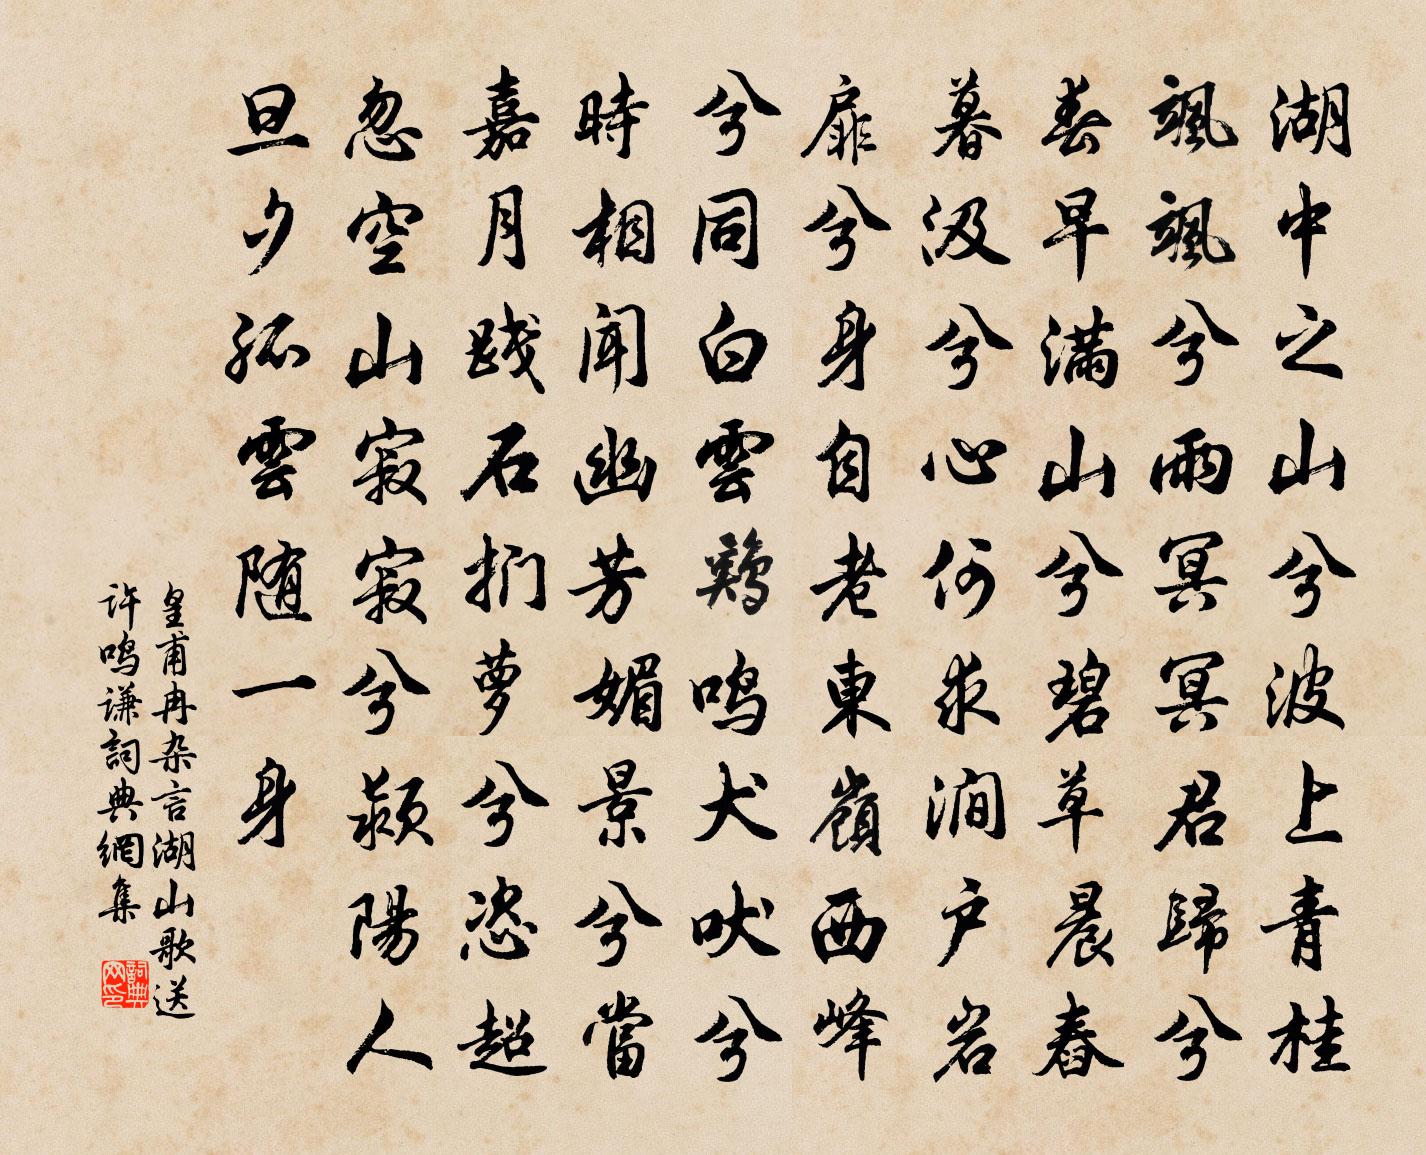 湖中之山兮波上青桂
颯颯兮雨冥冥君歸兮
春早滿山兮碧草晨舂
暮汲兮心何求澗户岩
扉兮身自老東嶺西峰
兮同白雲鷄鳴犬吠兮
時相聞幽芳媚景兮當
嘉月踐石捫萝兮恣超
忽空山寂寂兮潁陽人
旦夕孤雲随一身
皇甫冉杂言湖山歌送
许鸣谦詞典網集
詞典网印